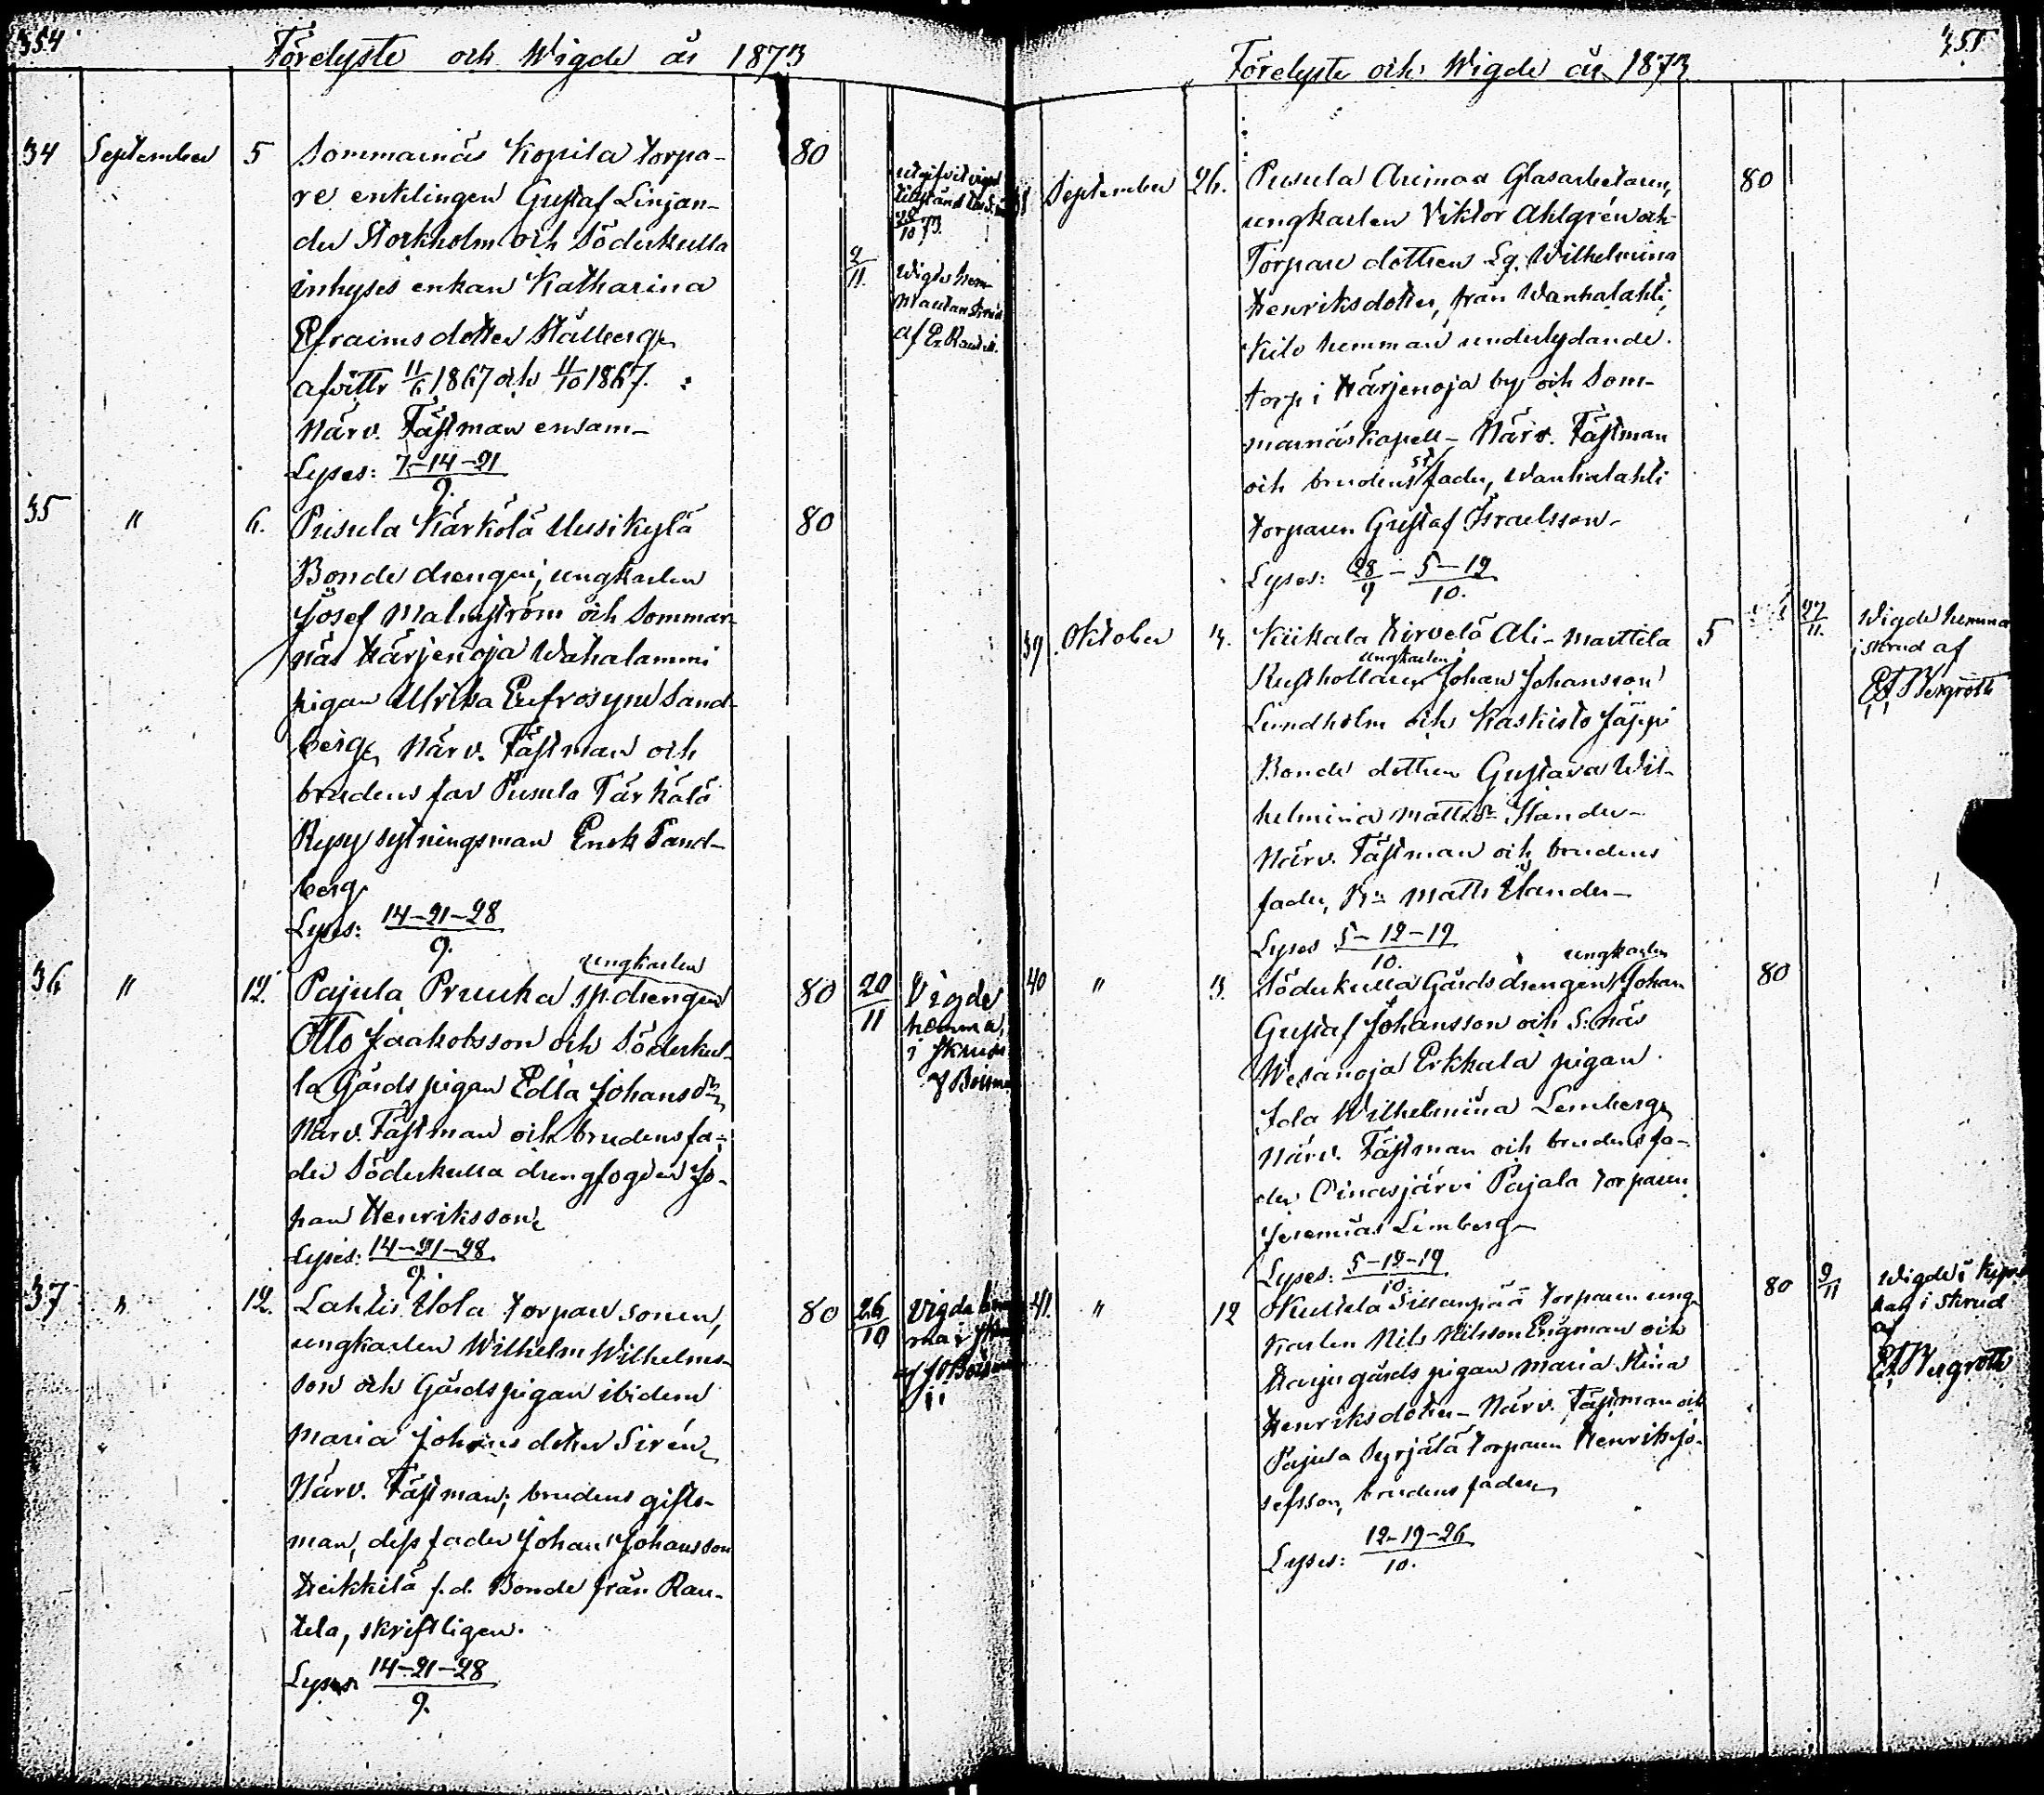 354
Förelyste och Wigde år 1873
34 September 5 Sommarnäs Kopila torpa- 80
re enklingen Gustaf Linjan-
der Storkholm och Söderkulla
inhyses enkan Katharina
Efraims dotter Stålberg,
afvittr 11/6 1867 och 11/10 1867.
Närv. Fästman ensam-
Lyses: 7-14-21
9.
28/10 73.
2/11. Wigde hem-
ma utan skrud
af
35 " 6. Pusula Kärkölä Uusikylä 80
Bonde drengen, ungkarlen
Josef Malmström och Sommar-
näs Härjenoja Wahalammi
pigan Ulrika Eufrosyne Sand-
berg, Närv. Fästman och
brudens far Pusula Tärkälä
sytningsman Erik Sand-
berg
Lyses: 14-21-28
9.
36 " 12. Pajula Pruuka sp.drengen ungkarlen 80 20/11 Vigde
hemma
i skrud
Otto Jaakobsson och Söderkul-
la Gårds pigan Edla Johansdr,
Närv. Fästman och brudens fa-
der Söderkulla drengfogden Jo-
han Henriksson,
Lyses: 14-21-28
9.
37 " 12. Lahtis Uola torpare sonen, 80 26/10 Vigde hem
ma i
ungkarlen Wilhelm Wilhelms-
son och Gårdspigan ibidem
Maria Johans dotter Sirén,
Närv. Fästman; brudens gifto-
man, dess fader Johan Johansson
Heikkilä f.d. Bonde från Rau-
tela, skriftligen.
Lyses: 14-21-28
9.
355
Förelyste och Wigde år 1873
38 September 26. Pusula Arimaa Glasarbetaren, 80
ungkarlen Viktor Ahlgrén och
Torpare dottren Eg. Wilhelmina
Henriksdotter, från Wanhalahti,
Kilo hemman underlydande
torp i Härjenoja by och Som-
marnäs kapell- Närv. Fästman
och brudens fader, Wanhalahti
torparen Gustaf Israelsson-
Lyses: 28/9 - 5-12
10.
39 Oktober 3. Kiikala Hirvelä Ali-Marttila 5 27/11. Wigde hemma
i skrud af
E J Bergroth
Rusthollaren ungkarlen Johan Johansson
Lundholm och Kaskisto Jäppi
Bonde dottren Gustava Wil-
helmina Mattsdr Ilander-
Närv. Fästman och brudens
fader, Bn Matts Ilander-
Lyses 5-12-19
10.
40 " 3. Söderkulla Gårds drengen ungkarlen Johan 80
Gustaf Johansson och S:näs
Wesanoja Erkkala pigan
Ida Wilhelmina Lemberg,
Närv. Fästman och brudens fa-
der Oinasjärvi Pajala torparen
Jeremias Lemberg-
Lyses: 5-12-19
10
41. " 12 Skuttala Sillanpää torparen ung- 80 9/11 Wigde i kyr-
kan i skrud
af
E J Bergroth
karlen Nils Nilsson Engman och
Harju gårds pigan Maria Stina
Henriksdotter- Närv. Fästman och
Pajula Syrjälä torparen Henrik Jo-
sefsson, brudens fader,
Lyses: 12-19-26
10.